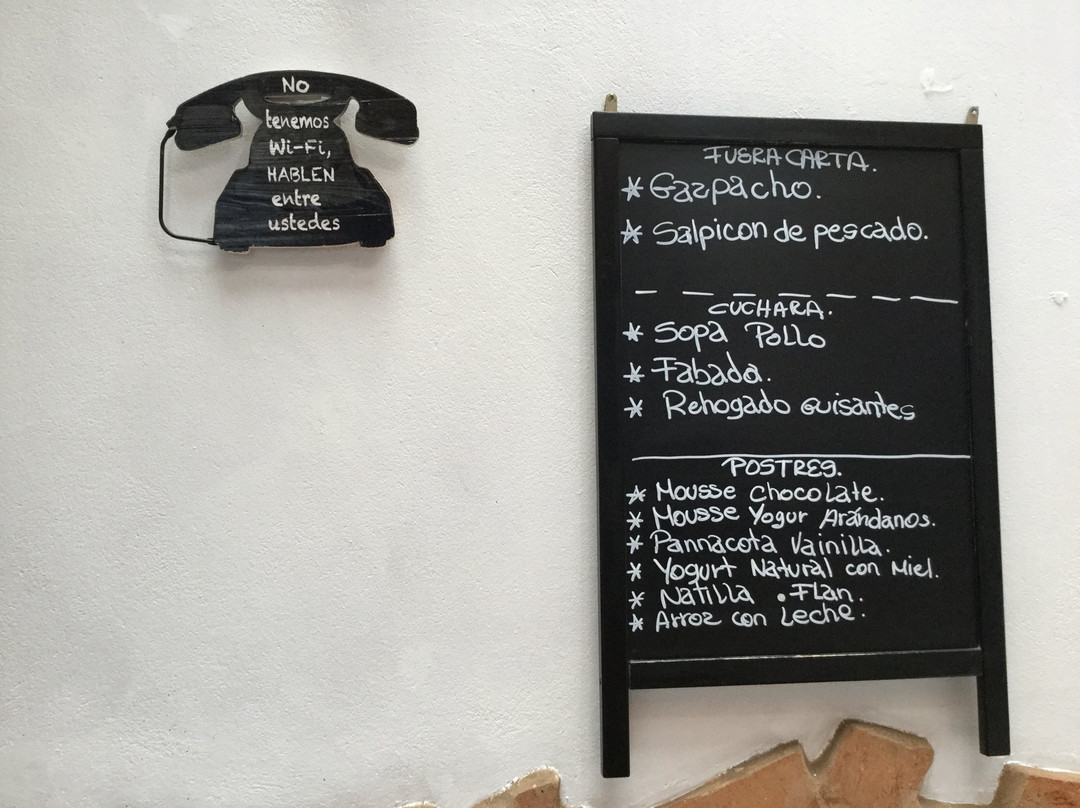 No
tenemos
Wi-Fi,
HABLEN
entre
ustedes
FUERA CARTA.
* Gazpacho.
* Salpicon de pescado.
CUCHARA.
* Sopa Pollo
* Fabada.
* Rehogado Guisantes
POSTRES.
* Mousse Chocolate.
* Mousse Yogur Arándanos.
* Pannacota Vainilla.
* Yogurt Natural con Miel.
* Natilla • Flan.
* Arroz con Leche.